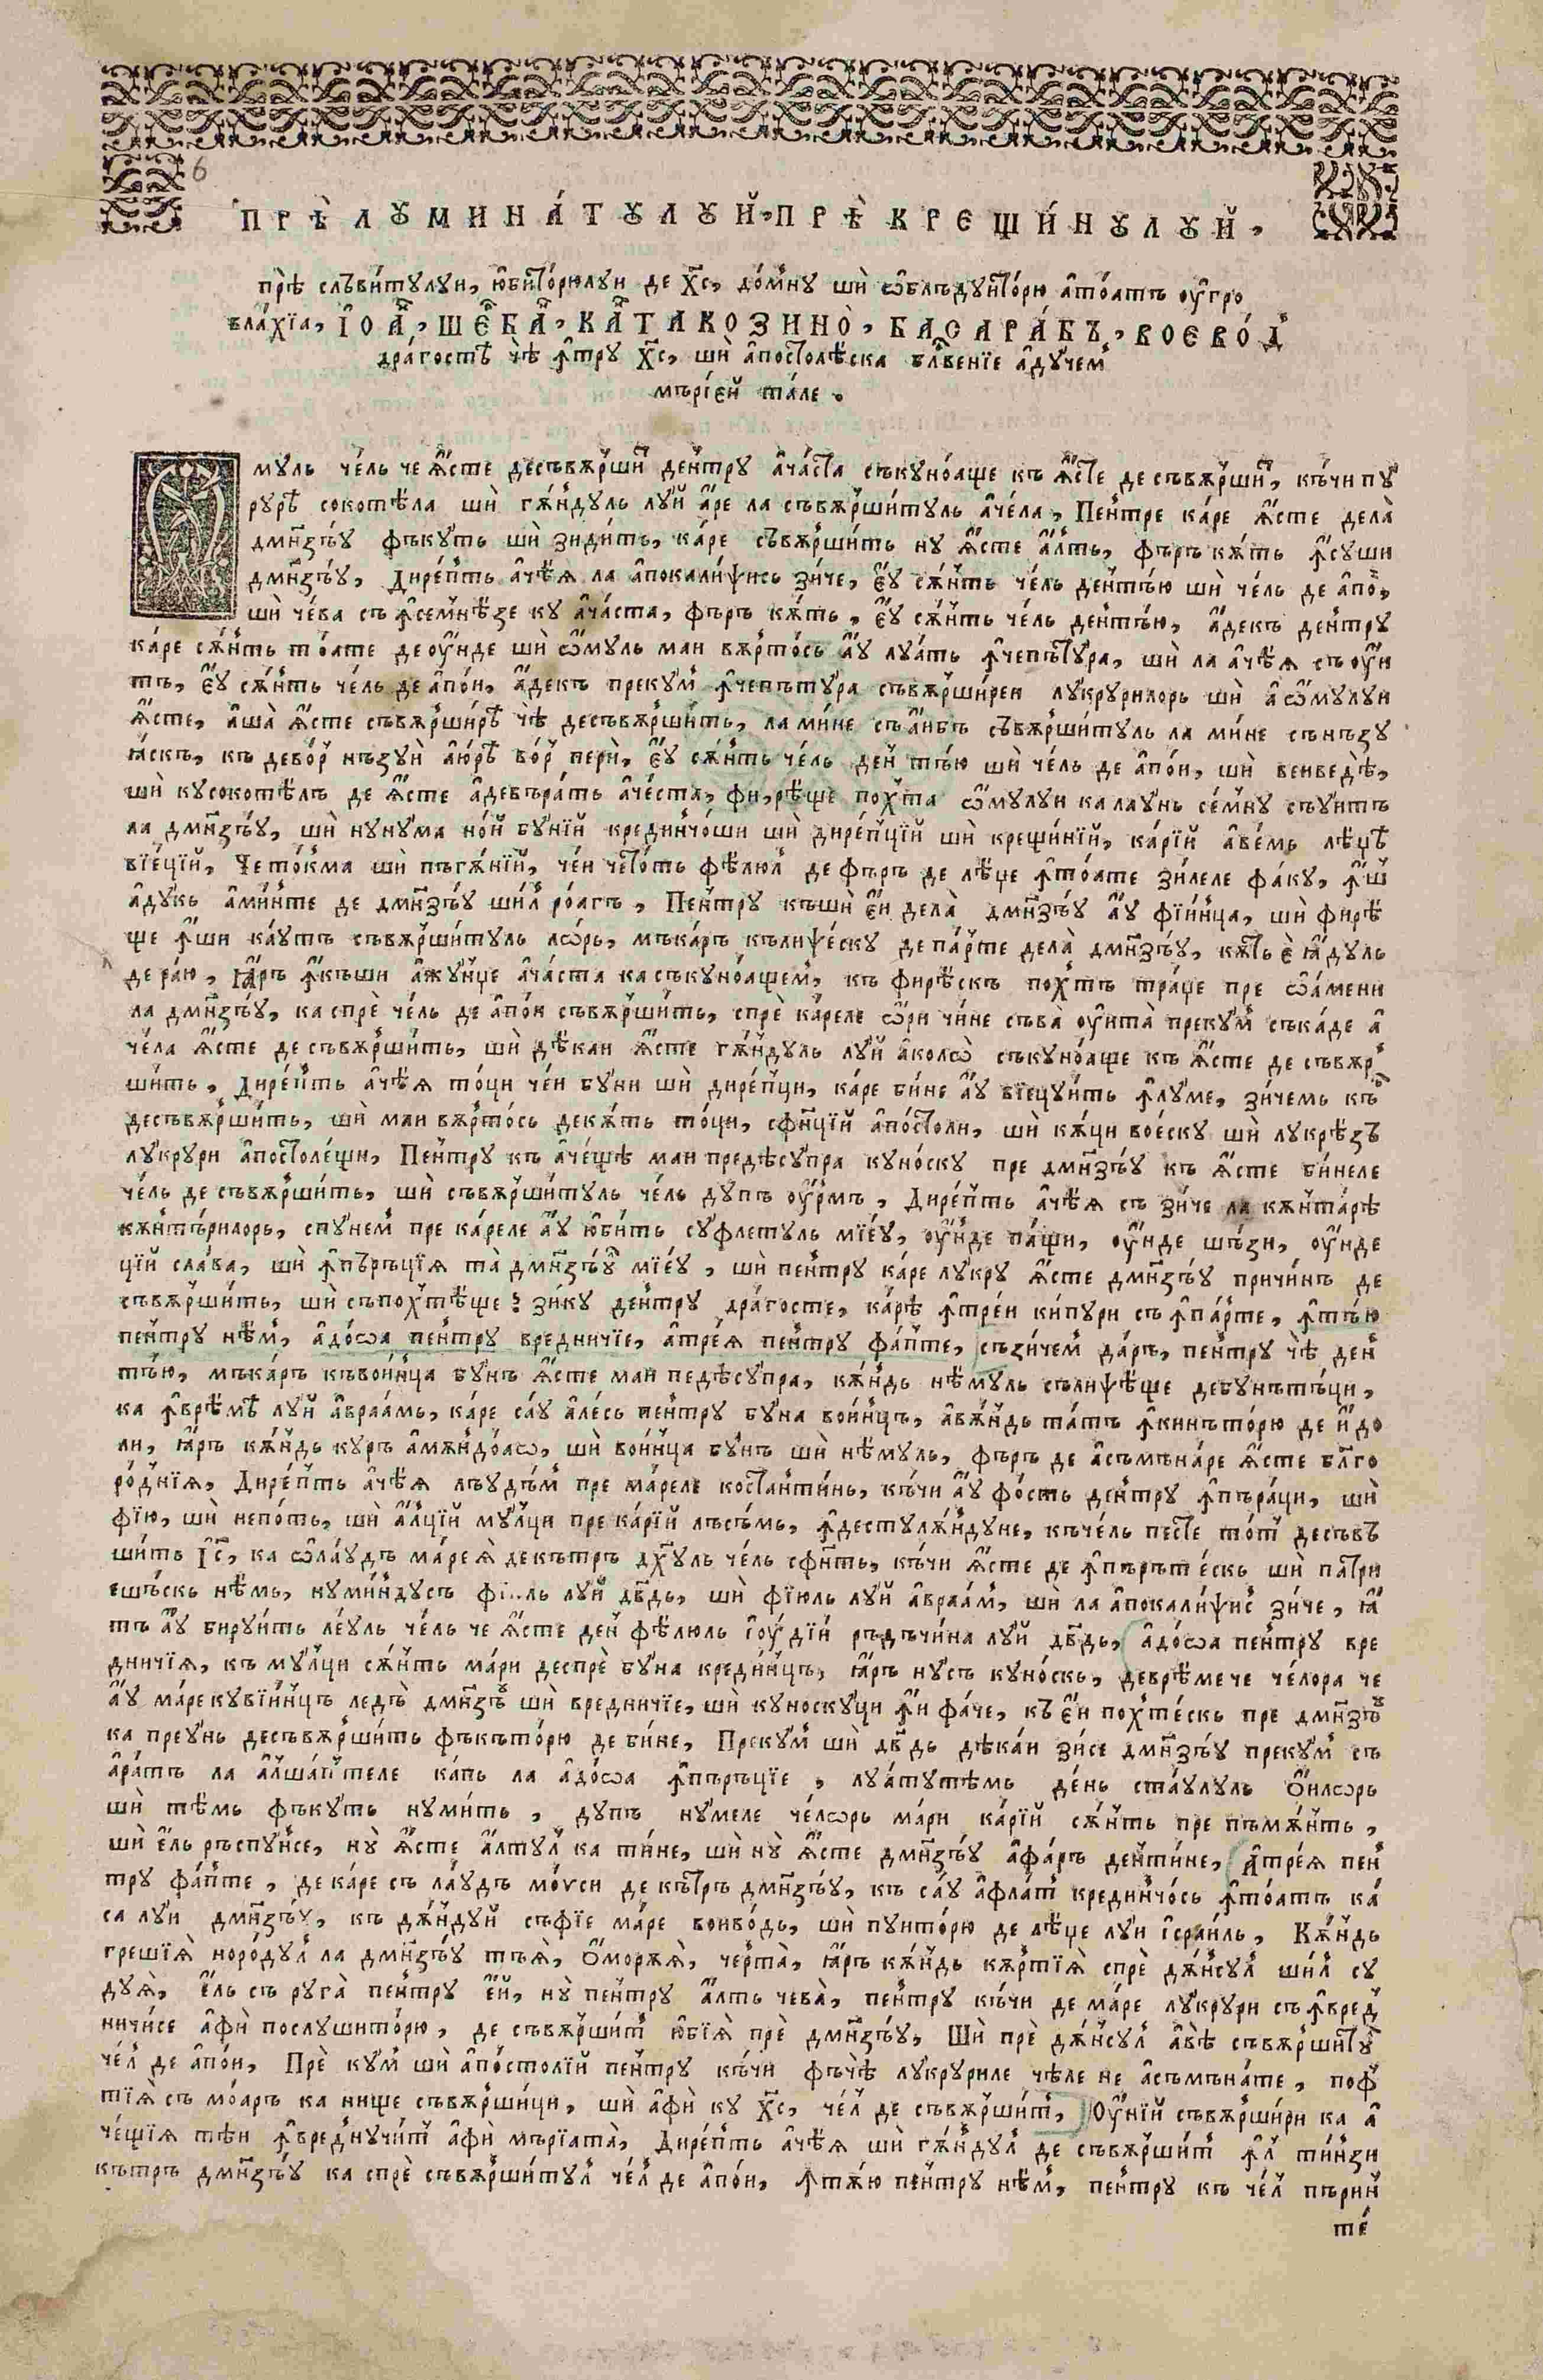 6
ПРѢЛꙋМИНА́ТꙋЛꙋЙ, ПРѢКРЕЩИ́НꙋЛꙋЙ,
прѣ слъви́тꙋлꙋи, юбито́рюлꙋи де Хс҃, до́мнꙋ ши ѡблъдꙋито́рю ато́атъ оу҆гро
вла́хїа, І҆ѠА҃Н, ШЕ҃РБАН, КАТАКОЗИНО̀, БАСАРА́БЪ, ВОЕВО́Д
дра́госте чѣ ꙟтрꙋ Хс҃, ши апостолѣска бл҃вениїе адꙋ́чем
мъріей та́ле.
Ѡмꙋль че́ль че ꙗ҆́сте десъвѫрши́т де́нтрꙋ ача́ста съкꙋно́аще къ ꙗ҆́сте де съвѫрши́т, къ́чи пꙋ́
рꙋрѣ сокотѣ́ла ши гѫ́ндꙋль лꙋй а́ре ла съвѫрши́тꙋль аче́ла, Пе́нтре ка́ре ꙗ҆́сте дела̀
дмн҃зъꙋ фъкꙋ́ть ши зиди́ть, ка́ре съвѫрши́ть нꙋ ꙗ҆́сте а́лть, фъръ кѫ́ть ꙟсꙋши
дмн҃зъꙋ, Дире́пть ачѣ́ꙗ ла апокали́ѱись зи́че, є҆́ꙋ сѫ́нть че́ль дентъ́ю ши че́ль де апо́й,
ши че́ва съ ꙟсемнѣ́зе кꙋ ача́ста, фъръ кѫ́ть, є҆́ꙋ сѫ́нть че́ль дентъ́ю, а́декъ де́нтрꙋ
ка́ре сѫ́нть то́ате де оу҆́нде ши ѡ҆́мꙋль маи вѫрто́сь а́ꙋ лꙋа́ть ꙟчепътꙋ́ра, ши ла ачѣ́ꙗ съ оу҆́и
тъ, є҆́ꙋ сѫ́нть че́ль де апо́и, а́декъ прекꙋ́м ꙟчепътꙋ́ра съвѫрши́реи лꙋ́крꙋрилорь ши а ѡ҆́мꙋлꙋи
ꙗ҆́сте, аша̀ ꙗ҆́сте съвѫрши́рѣ чѣ десъвѫрши́ть, ла ми́не съ а́ибъ съвѫрши́тꙋль ла ми́не сънъзꙋ
ꙗ́скъ, къ дево́р нъзꙋѝ аю́рѣ во́р перѝ, є҆́ꙋ сѫ́нть че́ль ден тъ́ю ши че́ль де апо́и, ши венведѣ̀,
ши кꙋсокотѣ́лъ де ꙗ҆́сте адевъра́ть аче́ста, фи,рѣ́ще по́хта ѡ҆́мꙋлꙋи калаꙋнь се́мнꙋ съꙋитъ
ла дмн҃зъꙋ, ши нꙋнꙋма но́й бꙋнїй кредин́чо́ши ши дире́пцїй ши крещи́нїй, ка́рїй аве́мь лѣ́цѣ
вїе́ций, Чето́кма ши пъгѫ́нїй, че́и чето́ть фѣ́люл де фъръ де лѣ́ще ꙟто́ате зи́леле фа́кꙋ, ꙟш
адꙋ́кь ами́нте де дмн҃зъꙋ ши́л ро́агъ, Пе́нтрꙋ къши є҆́и дела̀ дмн҃зъꙋ а́ꙋ фїи́нца, ши фирѣ́
ще ꙟши ка́ꙋтъ съвѫрши́тꙋль лѡ́рь, мъка́ръ кълипсе́скꙋ де па́рте дела̀ дмн҃зъꙋ, кѫ́ть є҆̀ ꙗ҆́дꙋль
де ра́ю, ꙗ҆́ръ ꙟкъши ажꙋ́нце ача́ста ка съкꙋно́ащем, къ фирѣ́скъ по́хтъ тра́це пре ѡ҆а́мени
ла дмн҃зъꙋ, ка спрѐ че́ль де апо́и съвѫрши́ть, спрѐ ка́реле ѡ҆ри чи́не съва̀ оу҆ита̀ прекꙋ́м съка́де а
че́ла ꙗ҆́сте де съвѫрши́ть, ши дѣ́каи ꙗ҆́сте гѫ́ндꙋль лꙋ́й аколѡ̀ съкꙋно́аще къ ꙗ҆́сте де съвѫр
ши́ть, Дире́пть ачѣ́ꙗ то́ци че́и бꙋ́ни ши дире́пци, ка́ре би́не а́ꙋ вїецꙋи́ть ꙟлꙋ́ме, зи́чемь къ
десъвѫрши́ть, ши маи вѫрто́сь декѫ́ть то́ци, сфи́нцїй апо́столи, ши кѫ́ци вое́скꙋ ши лꙋкрѣ́зъ
лꙋ́крꙋри апостоле́щи, Пе́нтрꙋ къ аче́щѣ маи предѣсꙋ́пра кꙋно́скꙋ пре дмн҃зъꙋ къ ꙗ҆́сте би́неле
че́ль де съвѫрши́ть, ши съвѫрши́тꙋль че́ль дꙋ́пъ оу҆́рмъ, Дире́пть ачѣ́ꙗ съ зи́че ла кѫнта́рѣ
кѫнтъ́рилорь, спꙋ́нем пре ка́реле а́ꙋ юби́ть сꙋ́флетꙋль мїе́ꙋ, оу҆́нде па́щи, оу҆́нде шъ́зи, оу҆́нде
ций сла́ва, ши ꙟпъръці́ꙗ та̀ дмн҃зъꙋ мїе́ꙋ, ши пе́нтрꙋ ка́ре лꙋ́крꙋ ꙗ҆́сте дмн҃зъꙋ причи́нъ де
съвѫрши́ть, ши съпохтѣ́ще? зи́кꙋ де́нтрꙋ дра́госте, ка́рѣ ꙟтре́и ки́пꙋри съ ꙟпа́рте, ꙟтъ́ю
пе́нтрꙋ нѣ́м, адо́ѡа пе́нтрꙋ вредничїе, атре́ꙗ пе́нтрꙋ фа́пте, съзи́чем да́ръ, пе́нтрꙋ чѣ ден
тъ́ю, мъка́ръ къвои́нца бꙋ́нъ ꙗ҆́сте маи педѣсꙋ́пра, кѫ́ндь нѣ́мꙋль сълипсѣ́ще дебꙋнътъ́ци,
ка ꙟврѣ́мѣ лꙋй авраа́мь, ка́ре са́ꙋ але́сь пе́нтрꙋ бꙋ́на вои́нцъ, авѫ́ндь та́тъ ꙟкинъто́рю де и҆́до
ли, ꙗ҆́ръ кѫ́ндь кꙋръ амѫндо́лѡ, ши вои́нца бꙋ́нъ ши нѣ́мꙋль, фъръ де асъмъна́ре ꙗ҆́сте бл҃го
ро́днїꙗ, Дире́пть ачѣ́ꙗ лъꙋдъ́м пре ма́реле костанти́нь, къ́чи а́ꙋ фо́сть де́нтрꙋ ꙟпъра́ци, ши
фїю, ши непо́ть, ши а́лцїй мꙋ́лци пре ка́рїй лъсъ́мь, ꙟдестꙋлѫ́ндꙋне, къче́ль песте то́т десъвъ
ши́ть І҆с҃, ка ѡ҆ла́ꙋдъ ма́ре ꙗ̀ декътръ дх҃ꙋль че́ль сфн҃ть, къ́чи ꙗ҆́сте де ꙟпъръте́скь ши патри
ешъ́скь нѣ́мь, нꙋми́ндꙋсъ фі..ль лꙋй дв҃дь, ши фїюль лꙋй авраа́м, ши ла апокали́ѱис зи́че, ꙗ҆́
тъ а́ꙋ бирꙋи́ть ле́ꙋль че́ль че ꙗ҆́сте ден фѣ́люль і҆оу́дїй ръдъчи́на лꙋй дв҃дь, адо́ѡа пе́нтрꙋ вре
дничі́ꙗ, къ мꙋ́лци сѫ́нть ма́ри деспрѐ бꙋ́на креди́нцъ, ꙗ҆́ръ нꙋсъ кꙋно́скь, деврѣ́ме че че́лора че
а́ꙋ ма́ре кꙋвїи́нцъ ледъ̀ дмн҃зъꙋ ши вредничїе, ши кꙋноскꙋ́ци ꙟи фа́че, къ є҆́и похте́скь пре дмн҃зъꙋ
ка преꙋ́нь десъвѫрши́ть фъкъто́рю де би́не, Прекꙋ́м ши дв҃дь дѣка́и зи́се дмн҃зъꙋ прекꙋ́м съ
ара́тъ ла а́лша́птеле ка́пь ла адо́ѡа ꙟпъръціе, лꙋа́тꙋтѣмь де́нь ста́ꙋлꙋль ѻ҆́илѡрь
ши тѣ́мь фъкꙋ́ть нꙋми́ть, дꙋ́пъ нꙋ́меле че́лѡрь ма́ри ка́рїй сѫ́нть пре пъмѫ́нть,
ши є҆́ль ръспꙋ́нсе, нꙋ̀ ꙗ҆́сте а́лтꙋл ка ти́не, ши нꙋ̀ ꙗ҆́сте дмн҃зъꙋ афа́ръ денти́не, Атре́ꙗ пен
трꙋ фа́пте, де ка́ре съ ла́ꙋдъ мо́ѵси де къ́тръ дмн҃зъꙋ, къ са́ꙋ афла́т крединчо́сь ꙟто́атъ ка́
са лꙋи дмн҃зъꙋ, къ дѫ́ндꙋй съфіе ма́ре воиво́дь, ши пꙋито́рю де лѣ́це лꙋи і҆сраи́ль, Кѫ́ндь
грешїꙗ̀ норо́дꙋл ла дмн҃зъꙋ тъꙗ̀, ѻ҆морѫꙗ̀, черта̀, ꙗ҆́ръ кѫ́ндь кѫртїꙗ̀ спрѐ дѫ́нсꙋл ши́л сꙋ
дꙋꙗ̀, є҆́ль съ рꙋга̀ пе́нтрꙋ є҆́й, нꙋ̀ пе́нтрꙋ а́лть чева̀, пе́нтрꙋ къ́чи де ма́ре лꙋ́крꙋри съ ꙟвред
ничи́се афѝ послꙋшито́рю, де съвѫрши́т юбїꙗ̀ прѐ дмн҃зъꙋ, Ши прѐ дѫ́нсꙋл авѣ̀ съвѫршитꙋ̀
че́л де апо́и, Прѐ кꙋ́м ши апо́столїй пе́нтрꙋ къ́чи фъчѣ̀ лꙋ́крꙋриле чѣ́ле не асъмъна́те, поф
тїꙗ̀ съ мо́аръ ка нище съвѫрши́ци, ши афѝ кꙋ Хс҃, че́л де съвѫрши́т, Оу҆́нїй съвѫрши́ри ка а
че́щїꙗ тъ́и ꙟвреднꙋчи́т афѝ мъріата̀, Дире́пть ачѣ́ꙗ ши гѫ́ндꙋл де съвѫрши́т ꙟл ти́нзи
къ́тръ дмн҃зъꙋ ка спрѐ съвѫрши́тꙋл че́л де апо́и, ꙟтѫ́ю пе́нтрꙋ нѣ́м, пе́нтрꙋ къ че́л пърин
те́